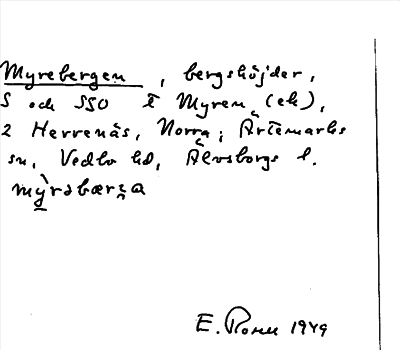 Myrebergen, bergshöjder,
S och SSO t Myren (ek),
2 Herrenäs, Norra, Ärtemarks
sn, Vedbo hd, Älvsborgs l.
mỳrəbærɡa
E. Rosell 1949